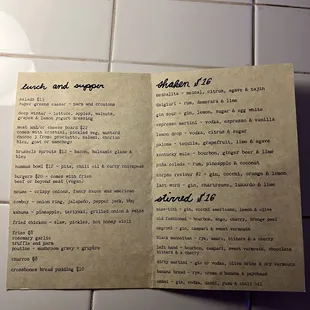 lunch and supper
salads $15
super greens caesar - parm and croutons
deep winter - lettuce, apples, walnuts,
grapes & lemon yogurt dressing
meat and/or cheese board $25
comes with crostini, pickled veg, mustard
choose 3 from: prosciutto, salami, chorizo
blue, goat or manchego
brussels sprouts $12 - bacon, balsamic glaze &
bleu
hummus bowl $12 - pita, chili oil &
burgers $20 - comes with fries
beef or beyond meat (vegan)
house - crispy onions, fancy sauce and american
cowboy - onion ring, jalapeño, pepper jack, bbq
kahuna - pineapple, teriyaki, grilled onion & swiss
fried chicken - slaw, pickles, hot honey aioli
fries $8
rosemary garlic
truffle and parm
poutine - mushroom gravy + gruyère
churros $8
crossbones bread pudding $10
shaken $16
mezcalita - mezcal, citrus, agave & tajin
daiquiri - rum, demerara & lime
gin sour - gin, lemon, sugar & egg white
espresso martini - vodka, espresso & vanilla
lemon drop - vodka, citrus & sugar
paloma - tequila, grapefruit, lime & agave
kentucky mule - bourbon, ginger beer & lime
piña colada - rum, pineapple & coconut
corpse reviver #2 - gin, cocchi, orange & lemon
last word - gin, chartreuse, luxardo & lime
stirred $16
old fashioned - bourbon, sugar, cherry, orange peel
negroni - gin, campari & sweet vermouth
black manhattan - rye, amaro, bitters & a cherry
left hand - bourbon, campari, sweet vermouth, chocolate
bitters & a cherry
dirty martini - gin or vodka, olive brine & dry vermouth